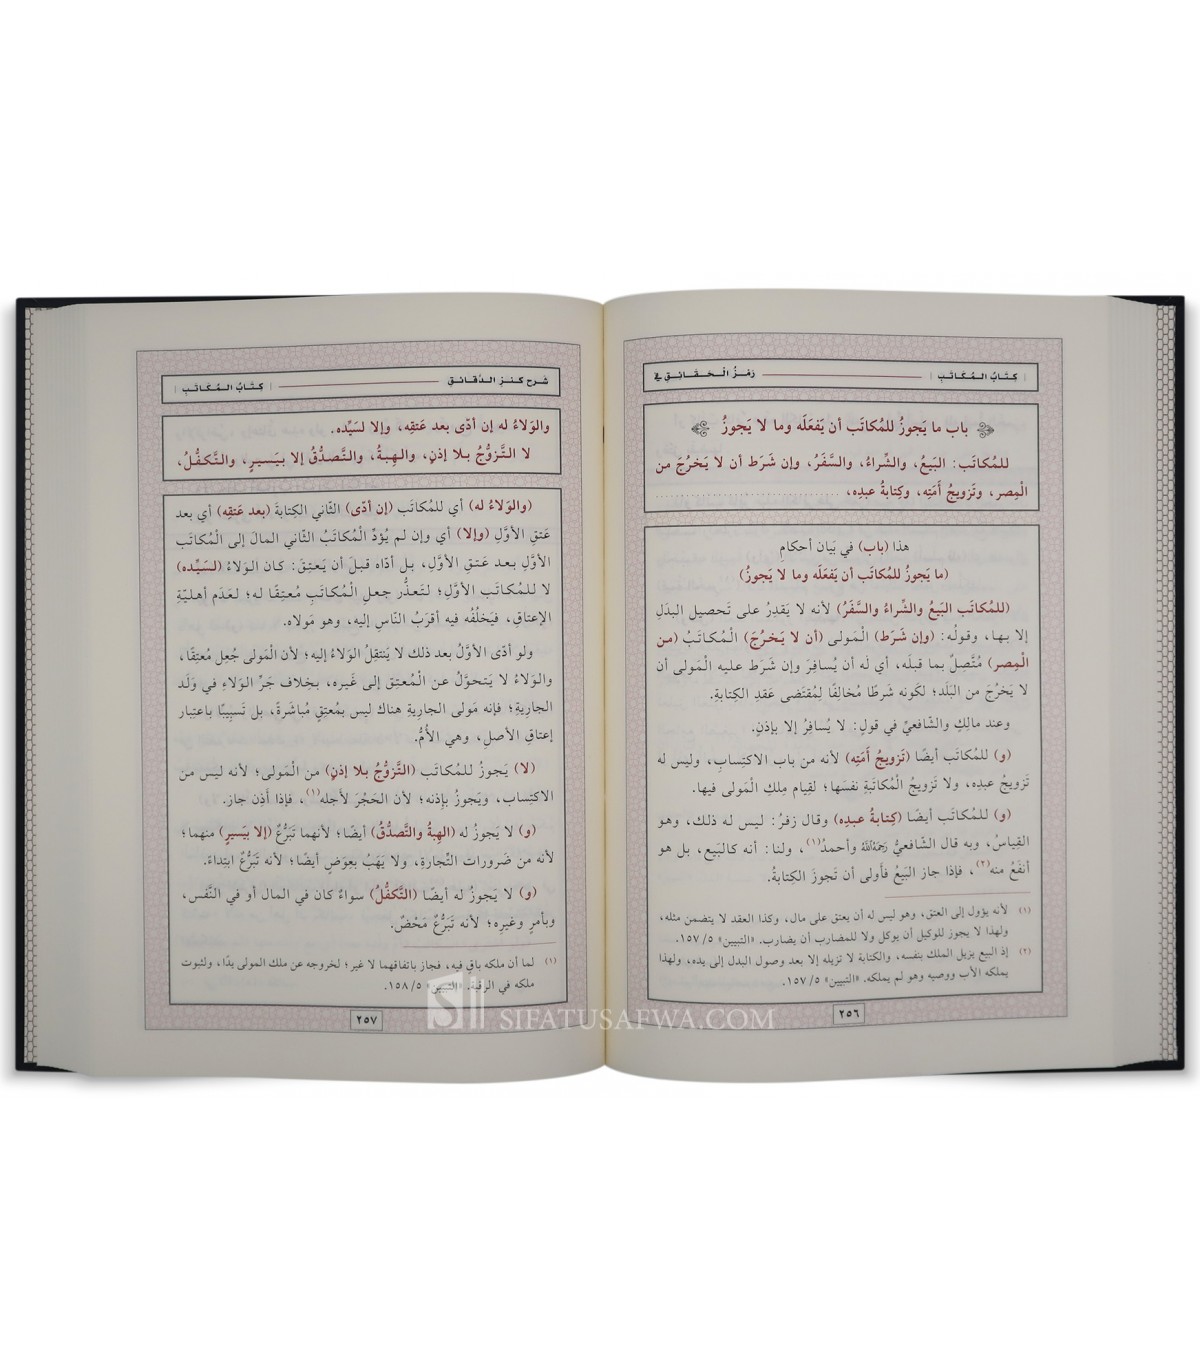 كِتَابُ المُكَاتَبِ
رَمْزُ الْحَقَائِقِ فِي
باب ما يَجوزُ للمُكاتَب أن يَفعَلَه وما لا يَجوزُ
للمُكاتَب: البَيعُ، والشِّراءُ، والسَّفَرُ، وإن شَرَط أن لا يَخرُجَ من
المِصر، وتَزويجُ أَمَتِه، وكِتابةُ عبدِه،
هذا (باب) في بَيان أحكامِ
(ما يَجوزُ للمُكاتَب أن يَفعَلَه وما لا يَجوزُ)
(للمُكاتَب البَيعُ والشِّراءُ والسَّفَرُ) لأنه لا يَقدِرُ على تَحصيل البَدَلِ
إلا بها، وقولُه: (وإن شَرَط) المَولى (أن لا يَخرُجَ) الْمُكاتَبُ (من
الْمِصر) مُتَّصِلٌ بما قبلَه، أي لَه أن يُسافِرَ وإن شَرَط عليه المَولى أن
لا يَخرُجَ من البَلَد؛ لكَونه شَرطًا مُخالفًا لِمُقتَضى عَقدِ الكِتابةِ.
وعند مالِكٍ والشَّافعيِّ في قولٍ: لا يُسافِرُ إلا بإذنٍ.
(و) للمُكاتَب أيضًا (تَزويجُ أَمَتِه) لأنه من باب الاكتِسابِ، وليس له
تَزويجُ عبدِه، ولا تَزويجُ الْمُكاتَبةِ نفسَها؛ لقِيام مِلكِ الْمَولى فيها.
(و) للمُكاتَب أيضًا (كِتابةُ عبدِه) وقال زفرُ: ليس له ذلك، وهو
القِياسُ، وبه قال الشَّافعيُّ رَحِمَهُ اللَّهُ وأحمدُ(١)، ولنا: أنه كالبَيع، بل هو
أنفَعُ منه(٢)، فإذا جاز البَيعُ فأَولى أن تَجوزَ الكِتابةُ.
(١) لأنه يؤول إلى العتق، وهو ليس له أن يعتق على مال، وكذا العقد لا يتضمن مثله،
ولهذا لا يجوز للوكيل أن يوكل ولا للمضارب أن يضارب. «التبيين» ٥/ ١٥٧.
(٢) إذ البيع يزيل الملك بنفسه، والكتابة لا تزيله إلا بعد وصول البدل إلى يده، ولهذا
يملكه الأب ووصيه وهو لم يملكه. «التبيين» ٥/ ١٥٧.
٢٥٦
شَرح كَنز الدَّقائق
كِتَابُ المُكَاتَبِ
والوَلاءُ له إن أدّى بعد عَتقِه، وإلا لسَيِّده.
لا التَّزوُّجُ بلا إذنٍ، والهِبةُ، والتَّصدُّقُ إلا بيَسيرٍ، والتَّكفُّلُ،
(والوَلاءُ له) أي للمُكاتَب (إن أدّى) الثَّاني الكِتابةَ (بعد عَتقِه) أي بعد
عَتقِ الأوَّلِ (وإلا) أي وإن لم يُؤدِّ الْمُكاتَبُ الثَّاني المالَ إلى الْمُكاتَب
الأوَّلِ بعد عَتقِ الأوَّلِ، بل أدّاه قبلَ أن يَعتِقَ: كان الوَلاءُ (لسَيِّده)
لا للمُكاتَب الأوَّلِ؛ لتَعذُّر جعلِ الْمُكاتَبِ مُعتِقًا له؛ لعَدَم أهليّةِ
الإعتاقِ، فيَخلُفُه فيه أقرَبُ النّاسِ إليه، وهو مَولاه.
ولو أدّى الأوَّلُ بعد ذلك لا يَنتقِلُ الوَلاءُ إليه؛ لأن الْمَولى جُعِل مُعتِقًا،
والوَلاءُ لا يَتحوَّلُ عن الْمُعتِق إلى غَيره، بخِلاف جَرِّ الوَلاءِ في وَلَد
الجاريةِ؛ فإنه مَولى الجاريةِ هناك ليس بمُعتِقٍ مُباشَرةً، بل تَسبِيبًا باعتِبار
إعتاقِ الأصلِ، وهي الأُمُّ.
(لا) يَجوزُ للمُكاتَب (التَّزوُّجُ بلا إذنٍ) من الْمَولى؛ لأنه ليس من
الاكتِساب، ويَجوزُ بإذنه؛ لأن الحَجْرَ لأجله(١)، فإذا أَذِن جاز.
(و) لا يَجوزُ له (الهِبةُ والتَّصدُّقُ) أيضًا؛ لأنهما تَبَرُّعٌ (إلا بيَسيرٍ) منهما؛
لأنه من ضَرورات التِّجارةِ، ولا يَهَبُ بعِوَضٍ أيضًا؛ لأنه تَبَرُّعٌ ابتِداءً.
(و) لا يَجوزُ له أيضًا (التَّكفُّلُ) سواءٌ كان في المال أو في النَّفس،
وبأمرٍ وغيرِه؛ لأنه تَبَرُّعٌ مَحْضٌ.
(١) لما أن ملكه باق فيه، فجاز باتفاقهما لا غير؛ لخروجه عن ملك المولى يدًا، ولثبوت
ملكه في الرقبة. «التبيين» ٥/ ١٥٨.
٢٥٧
SIFATUSAFWA.COM